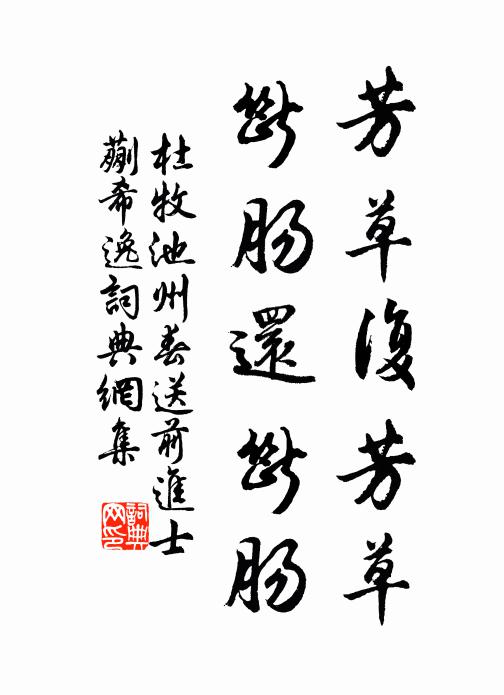 芳草復芳草
斷腸還斷腸
杜牧池州春送前進士
蒯希逸詞典網集
詞典
网印